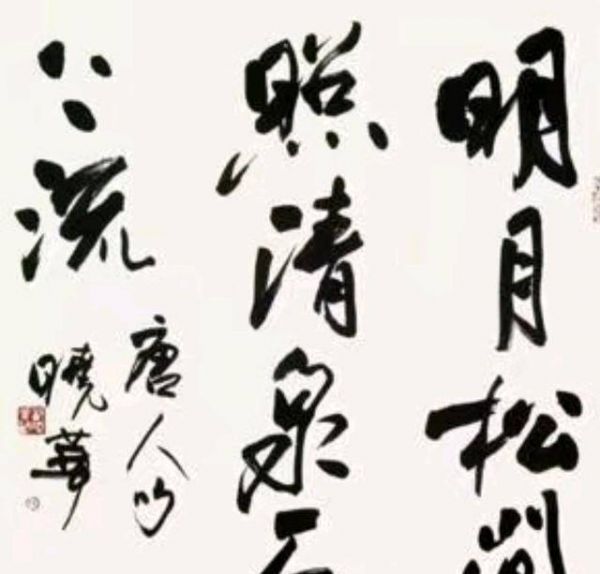 明月松間
照清泉石
上流
唐人句
曉